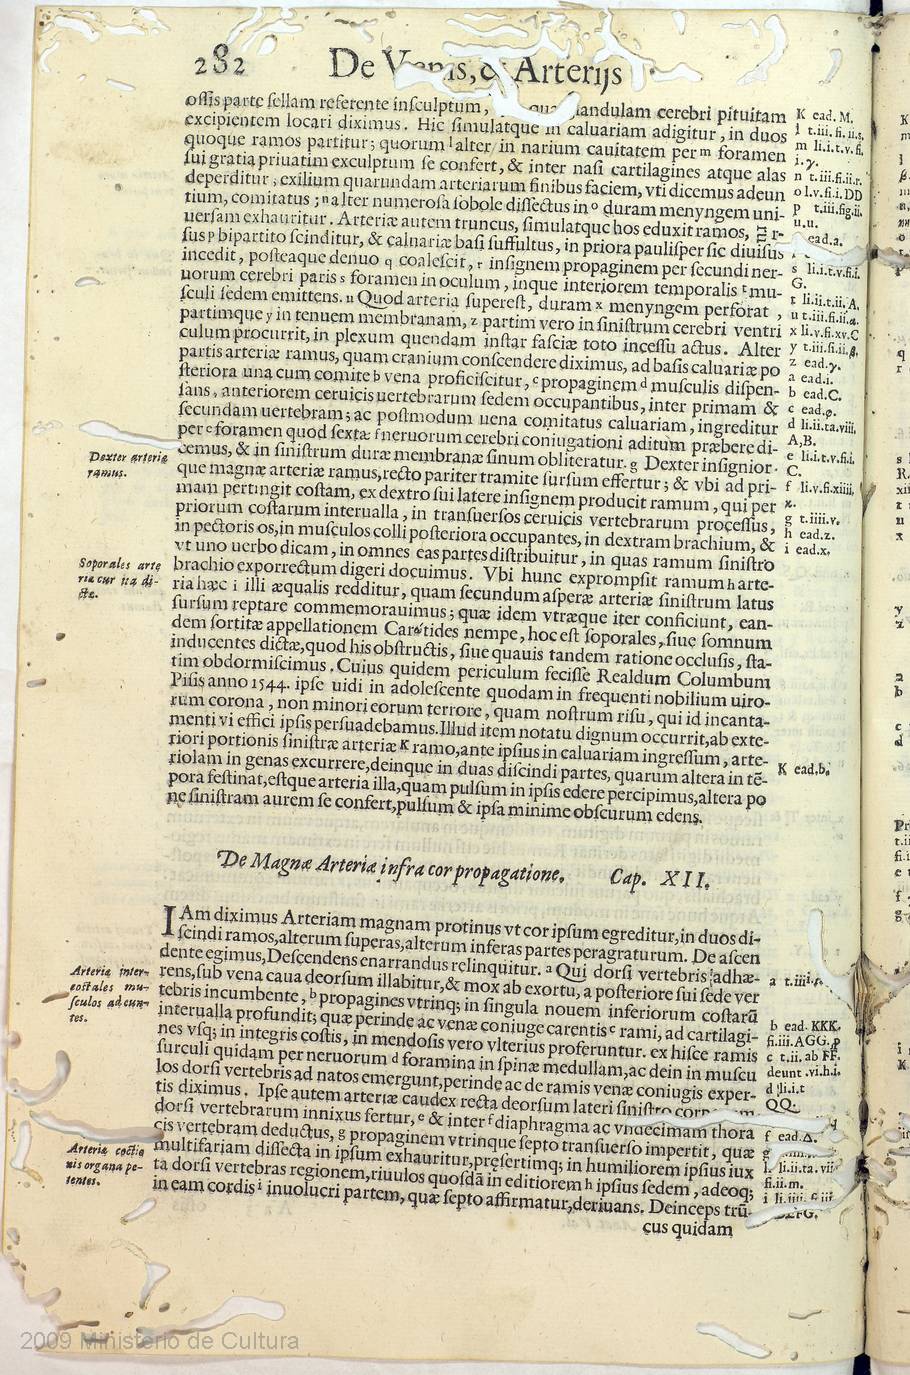 282
De Venis, & Arterijs
ossis parte sellam referente insculptum, landulam cerebri pituitam
excipientem locari diximus. Hic simulatque in caluariam adigitur, in duos
quoque ramos partitur; quorum l alter in narium cauitatem per m foramen
sui gratia priuatim exculptum se confert, & inter nasi cartilagines atque alas
deperditur, exilium quarundam arteriarum finibus faciem, vti dicemus adeun
tium, comitatus; n alter numerosa sobole dissectus in o duram menyngem uni-
uersam exhauritur. Arteriæ autem truncus, simulatque hos eduxit ramos,
sus p bipartito scinditur, & caluariæ basi suffultus, in priora paulisper sic diuisus
incedit, posteaque denuo q coalescit, r insignem propaginem per secundi ner-
uorum cerebri paris s foramen in oculum, inque interiorem temporalis t mu-
sculi sedem emittens. u Quod arteria superest, duram x menyngem perforat,
partimque y in tenuem membranam, z partim vero in sinistrum cerebri ventri
culum procurrit, in plexum quendam instar fasciæ toto incessu actus. Alter
partis arteriæ ramus, quam cranium conscendere diximus, ad basis caluariæ po
steriora una cum comite b vena proficiscitur, c propaginem d musculis dispen-
sans, anteriorem ceruicis uertebrarum sedem occupantibus, inter primam &
secundam uertebram; ac postmodum uena comitatus caluariam, ingreditur
per e foramen quod sextæ f neruorum cerebri coniugationi aditum præbere di-
cemus, & in sinistrum duræ membranæ sinum obliteratur. g Dexter insignior-
que magnæ arteriæ ramus, recto pariter tramite sursum effertur; & vbi ad pri-
mam pertingit costam, ex dextro sui latere insignem producit ramum, qui per
priorum costarum interualla, in transuersos ceruicis vertebrarum processus,
in pectoris os, in musculos colli posteriora occupantes, in dextram brachium, &
vt uno uerbo dicam, in omnes eas partes distribuitur, in quas ramum sinistro
brachio exporrectum digeri docuimus. Vbi hunc exprompsit ramum h arte-
ria hæc i illi æqualis redditur, quam secundum asperæ arteriæ sinistrum latus
sursum reptare commemorauimus; quæ idem vtræque iter conficiunt, ean-
dem sortitæ appellationem Carotides nempe, hoc est soporales, siue somnum
inducentes dictæ, quod his obstructis, siue quauis tandem ratione occlusis, sta-
tim obdormiscimus. Cuius quidem periculum fecisse Realdum Columbum
Pisis anno 1544. ipse uidi in adolescente quodam in frequenti nobilium uiro-
rum corona, non minori eorum terrore, quam nostrum risu, qui id incanta-
menti vi effici ipsis persuadebamus. Illud item notatu dignum occurrit, ab exte-
riori portionis sinistræ arteriæ K ramo, ante ipsius in caluariam ingressum, arte-
riolam in genas excurrere, deinque in duas discindi partes, quarum altera in tē-
pora festinat, estque arteria illa, quam pulsum in ipsis edere percipimus, altera po
ne sinistram aurem se confert, pulsum & ipsa minime obscurum edens.
K ead. M.
l t.iii.fi.ii.s.
m li.i.t.v.fi.
i.γ.
n t.iii.fi.ii.r.
o l.v.fi.i.DD
p t.iii.fig.ii.
u.u.
ead.a.
s li.i.t.v.fi.i.
G.
t li.ii.t.ii.A.
u t.iii.fi.ii.a.
x li.v.fi.xv.C
y t.iii.fi.ii.β.
z ead.γ.
a ead.i.
b ead.C.
c ead.φ.
d li.ii.ta.viii,
A,B.
e li.i.t.v.fi.i.
C.
f li.v.fi.xiiii,
x.
g t.iiii.v.
h ead.z.
i ead.x.
K ead.b.
Dexter arteriæ
ramus.
Soporales arte
riæ cur ita di-
ctæ.
De Magnæ Arteriæ infra cor propagatione. Cap. XII.
IAm diximus Arteriam magnam protinus vt cor ipsum egreditur, in duos di-
scindi ramos, alterum superas, alterum inferas partes peragraturum. De ascen
dente egimus, Descendens enarrandus relinquitur. a Qui dorsi vertebris adhæ-
rens, sub vena caua deorsum illabitur, & mox ab exortu, a posteriore sui sede ver
tebris incumbente, b propagines vtrinq; in singula nouem inferiorum costarū
interualla profundit; quæ perinde ac venæ coniuge carentis c rami, ad cartilagi-
nes vsq; in integris costis, in mendosis vero vlterius proferuntur. ex hisce ramis
surculi quidam per neruorum d foramina in spinæ medullam, ac dein in muscu
los dorsi vertebris ad natos emergunt, perinde ac de ramis venæ coniugis exper-
tis diximus. Ipse autem arteriæ caudex recta deorsum lateri sinistro
dorsi vertebrarum innixus fertur, e & inter f diaphragma ac vndecimam thora
cis vertebram deductus, g propaginem vtrinque septo transuerso impertit, quæ
multifariam dissecta in ipsum exhauritur, præsertimq; in humiliorem ipsius iux
ta dorsi vertebras regionem, riuulos quosdā in editiorem h ipsius sedem, adeoq;
in eam cordis i inuolucri partem, quæ septo affirmatur, deriuans. Deinceps trū-
cus quidam
Arteriæ inter-
costales mu-
sculos adeun-
tes.
Arteriæ coctio
nis organa pe-
tentes.
b ead. KKK.
fi.iii.AGG.
c t.ii. ab FF.
deunt .vi.h.i.
d li.i.t
QQ.
f ead.Δ.
h li.ii.ta.vii
fi.ii.m.